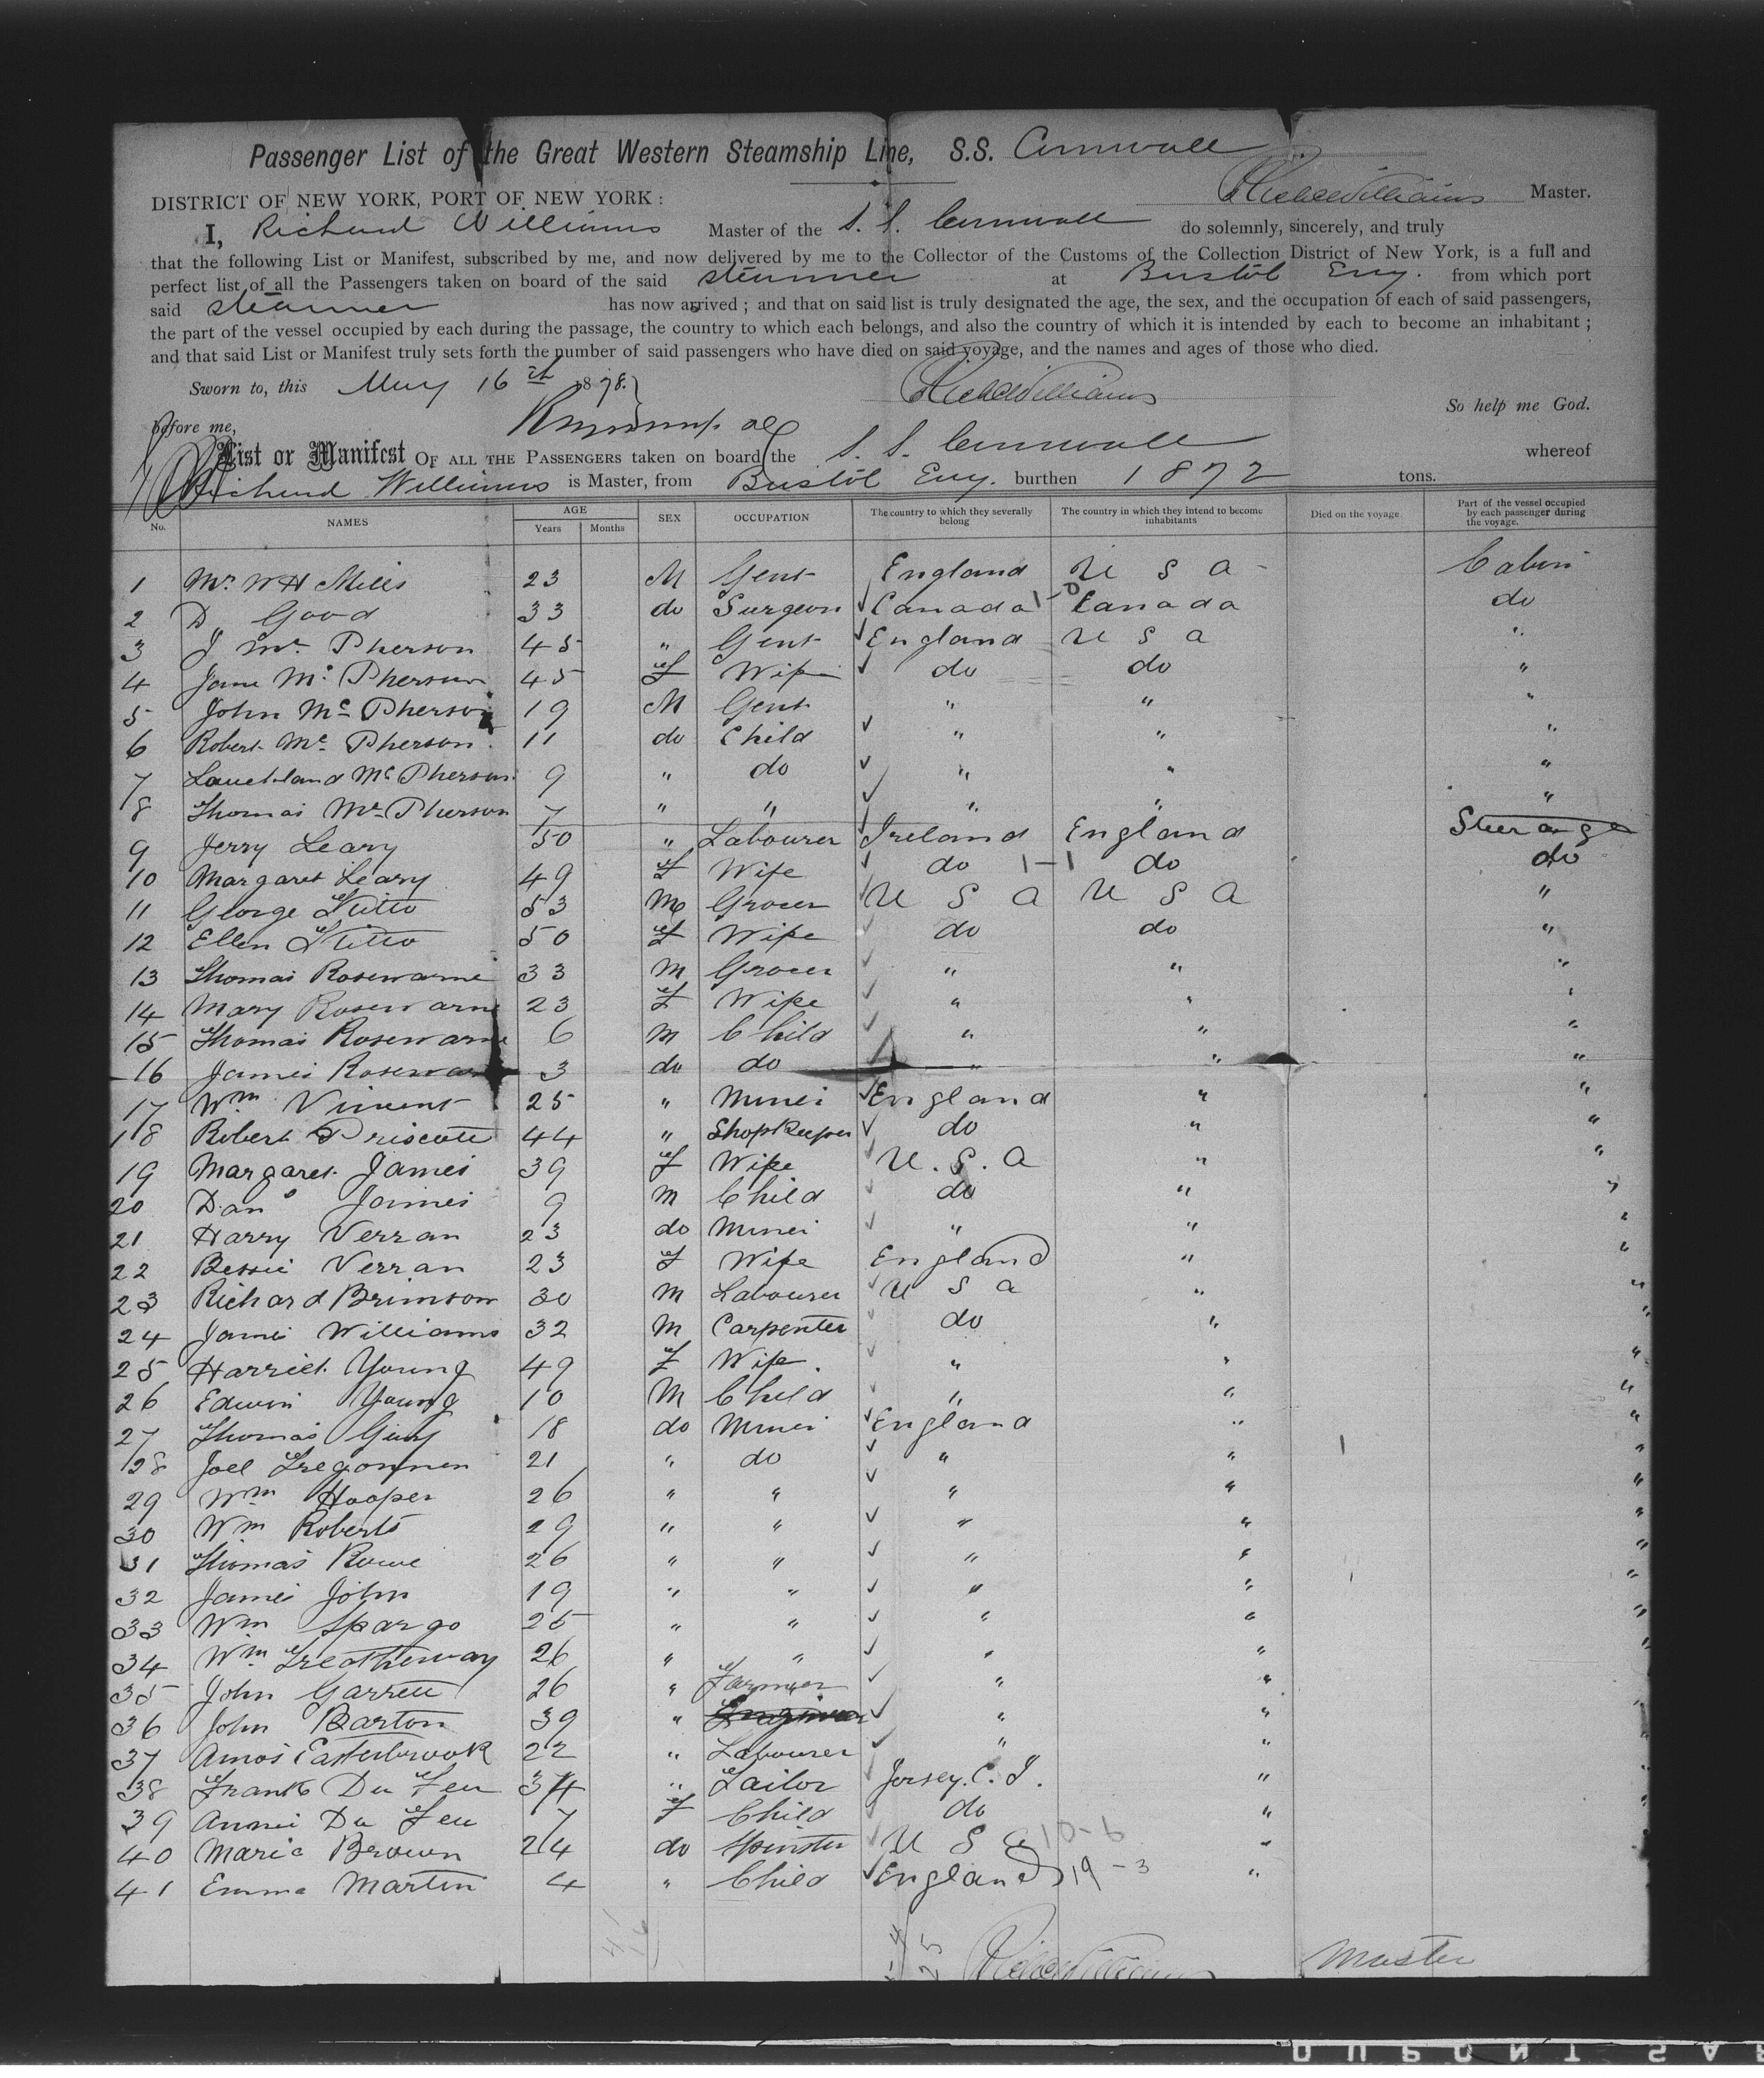 Passenger List of the Great Western Steamship Line, S.S. Cornwall
DISTRICT OF NEW YORK, PORT OF NEW YORK : Rich Williams Master.
I, Richard Williams Master of the S. S. Cornwall do solemnly, sincerely, and truly
that the following List or Manifest, subscribed by me, and now delivered by me to the Collector of the Customs of the Collection District of New York, is a full and
perfect list of all the Passengers taken on board of the said steamer at Bristol Eng. from which port
said steamer has now arrived ; and that on said list is truly designated the age, the sex, and the occupation of each of said passengers,
the part of the vessel occupied by each during the passage, the country to which each belongs, and also the country of which it is intended by each to become an inhabitant ;
and that said List or Manifest truly sets forth the number of said passengers who have died on said voyage, and the names and ages of those who died.
Sworn to, this May 16th 1878. Williams So help me God.
before me,
List or Manifest OF ALL THE PASSENGERS taken on board the S. S. Cornwall whereof
Richard Williams is Master, from Bristol Eng. burthen 1872 tons.
No. NAMES AGE Years Months SEX OCCUPATION The country to which they severally belong The country in which they intend to become inhabitants Died on the voyage Part of the vessel occupied by each passenger during the voyage.
1 Mr. W H Mills 23 M Gent England U S A Cabin
2 D. Good 33 do Surgeon Canada 1-0 Canada do
3 J Mc Pherson 45 " Gent England U S A "
4 Jane Mc Pherson 45 F Wife do do "
5 John Mc Pherson 19 M Gent " " "
6 Robert Mc Pherson 11 do Child " " "
7 Lauchland Mc Pherson 9 " do " " "
8 Thomas Mc Pherson 7 " " " " "
9 Jerry Leary 50 " Labourer Ireland England Steerage
10 Margaret Leary 49 F Wife do 1-1 do do
11 George Tutto 53 M Grocer U S A U S A "
12 Ellen Tutto 50 F Wife do do "
13 Thomas Rosewarne 33 M Grocer " " "
14 Mary Rosewarne 23 F Wife " " "
15 Thomas Rosewarne 6 M Child " " "
16 James Rosewarne 3 do do " " "
17 Wm Vincent 25 " Miner England " "
18 Robert Priscott 44 " Shopkeeper do " "
19 Margaret James 39 F Wife U. S. A " "
20 Danl James 9 M Child do " "
21 Harry Verran 23 do Miner " " "
22 Bessie Verran 23 F Wife England " "
23 Richard Brimson 30 M Labourer U S A " "
24 James Williams 32 M Carpenter do " "
25 Harriet Young 49 F Wife . " " "
26 Edwin Young 10 M Child " " "
27 Thomas Guy 18 do Miner England " "
28 Joel Tregonnen 21 " do " " "
29 Wm Hooper 26 " " " " "
30 Wm Roberts 29 " " " " "
31 Thomas Rowe 26 " " " " "
32 James John 19 " " " " "
33 Wm Spargo 25 " " " " "
34 Wm Greatherway 26 " " " " "
35 John Garrett 26 " Farmer " " "
36 John Barton 39 " " " "
37 Amos Easterbrook 22 " Labourer " " "
38 Frank Du Feu 34 " Tailor Jersey. C. I. " "
39 Annie Du Feu 7 F Child do " "
40 Maria Brown 24 do Spinster U S A 10-6 " "
41 Emma Martin 4 " Child England 19-3 " "
Williams Master